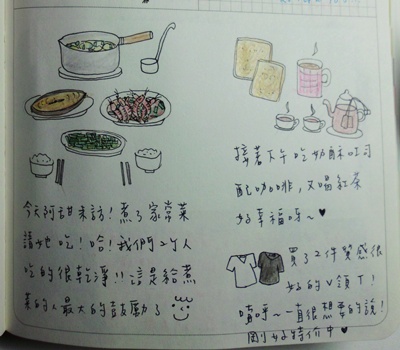 今天阿甜來訪!煮了家常菜
請她吃!哈!我們2个人
吃的很乾淨!!這是給煮
菜的人最大的鼓勵了
接著下午吃奶酥吐司
配咖啡,又喝紅茶
好幸福呀~♥
買了2件質感很
好的V領T!
嘖呼~一直很想要的說!
剛好特價中♥